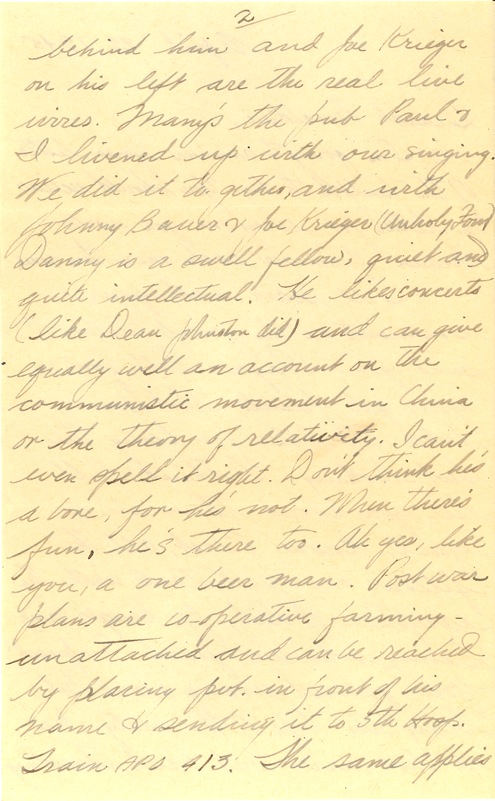 2
behind him and Joe Krieger
on his left are the real live
wires. Many's the pub Paul &
I livened up with our singing.
We did it together, and with
Johnny Bauer & Joe Krieger (Unholy Four)
Danny is a swell fellow, quiet and
quite intellectual. He likes concerts
(like Dean Johnston did) and can give
equally well an account on the
communistic movement in China
or the theory of relativity. I can't
even spell it right. Don't think he's
a bore, for he's not. When there's
fun, he's there too. Ah yes, like
you, a one beer man. Post war
plans are co-operative farming -
unattached and can be reached
by placing pvt. in front of his
name & sending it to 5th Hosp.
Train APO 413. The same applies